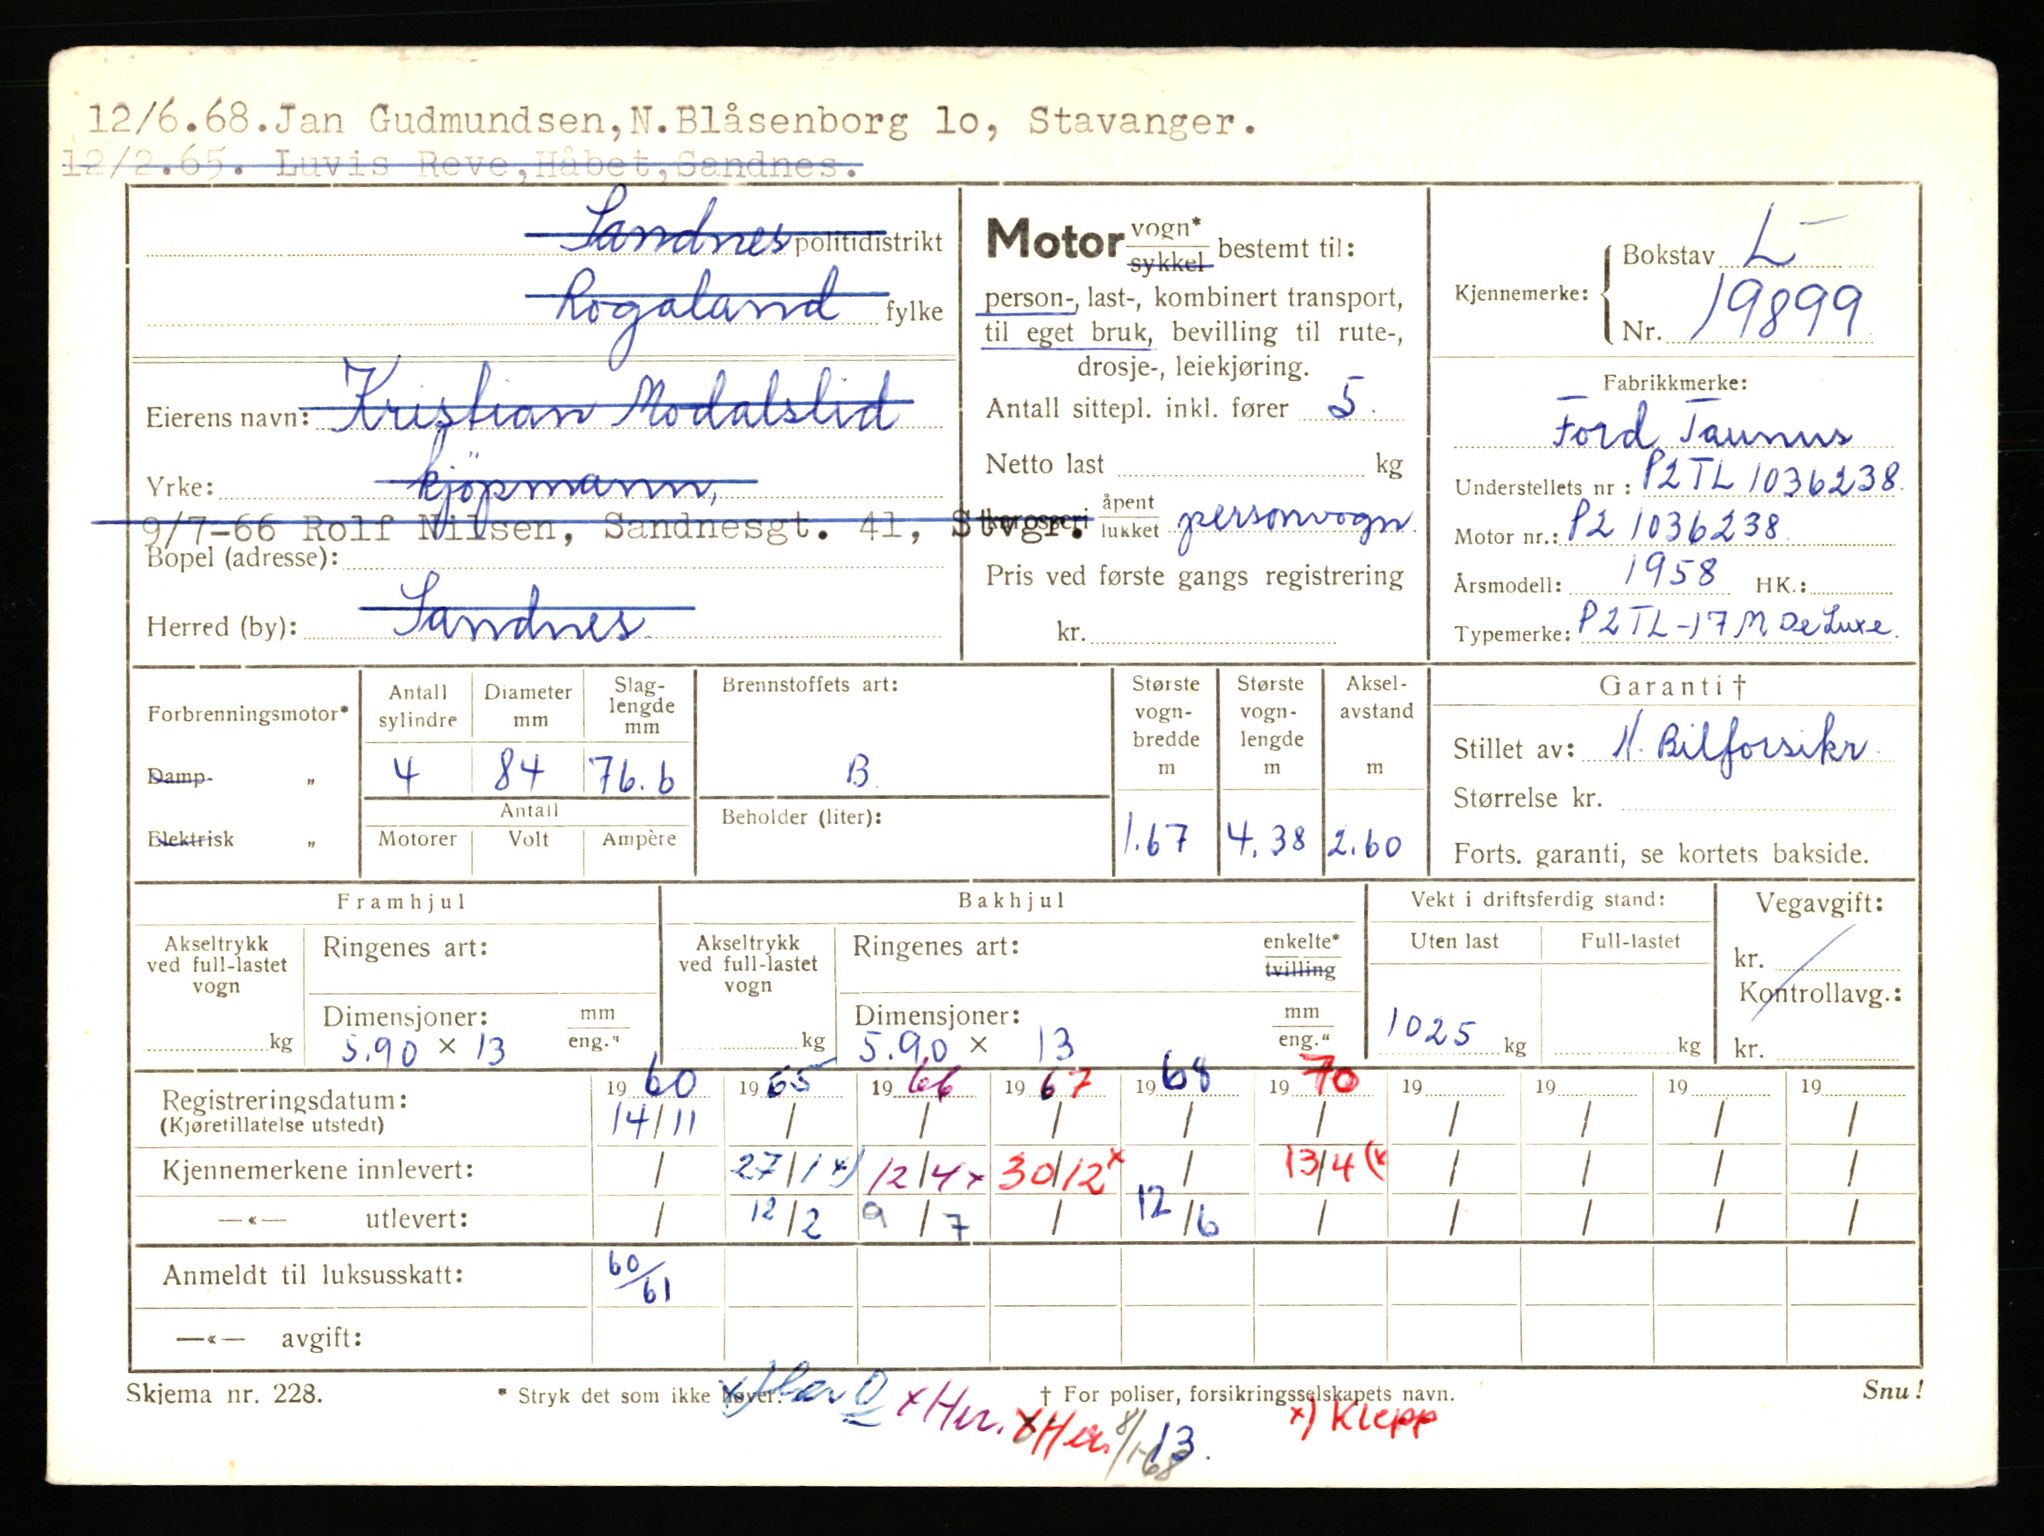 12/6.68.Jan Gudmundsen,N.Blåsenborg 1o, Stavanger.
12/2.65. Luvis Reve,Håbet,Sandnes.
Sandnes politidistrikt
Rogaland fylke
Eierens navn: Kristian Modalslid
Yrke: kjøpmann,
9/7-66 Rolf Nilsen, Sandnesgt. 41, Stvgr.
Bopel (adresse):
Herred (by): Sandnes
Motor vogn* sykkel bestemt til:
person-, last-, kombinert transport,
til eget bruk, bevilling til rute-,
drosje-, leiekjøring.
Antall sittepl. inkl. fører 5.
Netto last kg
karosseri åpent lukket personvogn
Pris ved første gangs registrering
kr.
Kjennemerke: Bokstav L-
Nr. 19899
Fabrikkmerke:
Ford Taunus
Understellets nr : P2TL 1036238
Motor nr.: P2 1036238
Årsmodell: 1958 HK.:
Typemerke: P2TL-17M De Luxe.
Forbrenningsmotor*
Damp- „
Elektrisk „
Antall sylindre
Diameter mm
Slag-lengde mm
4 84 76.6
Antall
Motorer Volt Ampère
Brennstoffets art:
B
Beholder (liter):
Største vogn-bredde m
Største vogn-lengde m
Aksel-avstand m
1.67 4.38 2.60
Garanti †
Stillet av: N. Bilforsikr.
Størrelse kr.
Forts. garanti, se kortets bakside.
Framhjul
Akseltrykk ved full-lastet vogn
kg
Ringenes art:
Dimensjoner: mm eng."
5.90 × 13
Bakhjul
Akseltrykk ved full-lastet vogn
kg
Ringenes art: enkelte* tvilling
Dimensjoner: mm eng."
5.90 × 13
Vekt i driftsferdig stand:
Uten last Full-lastet
1025 kg kg
Vegavgift:
kr.
Kontrollavg.:
kr.
1960 1965 1966 1967 1968 1970 19 19 19 19
Registreringsdatum: 14/11 / / / / / / / / /
(Kjøretillatelse utstedt)
Kjennemerkene innlevert: / 27/1 x) 12/4 x 30/12 x / 13/4 (x / / / /
—«— utlevert: / 12/2 9/7 / 12/6 / / / / /
Anmeldt til luksusskatt: 60/61
—«— avgift:
Skjema nr. 228. * Stryk det som ikke høver. † For poliser, forsikringsselskapets navn. Snu!
x) Her x Her. x Her. 8/1-68 13. x) Klepp